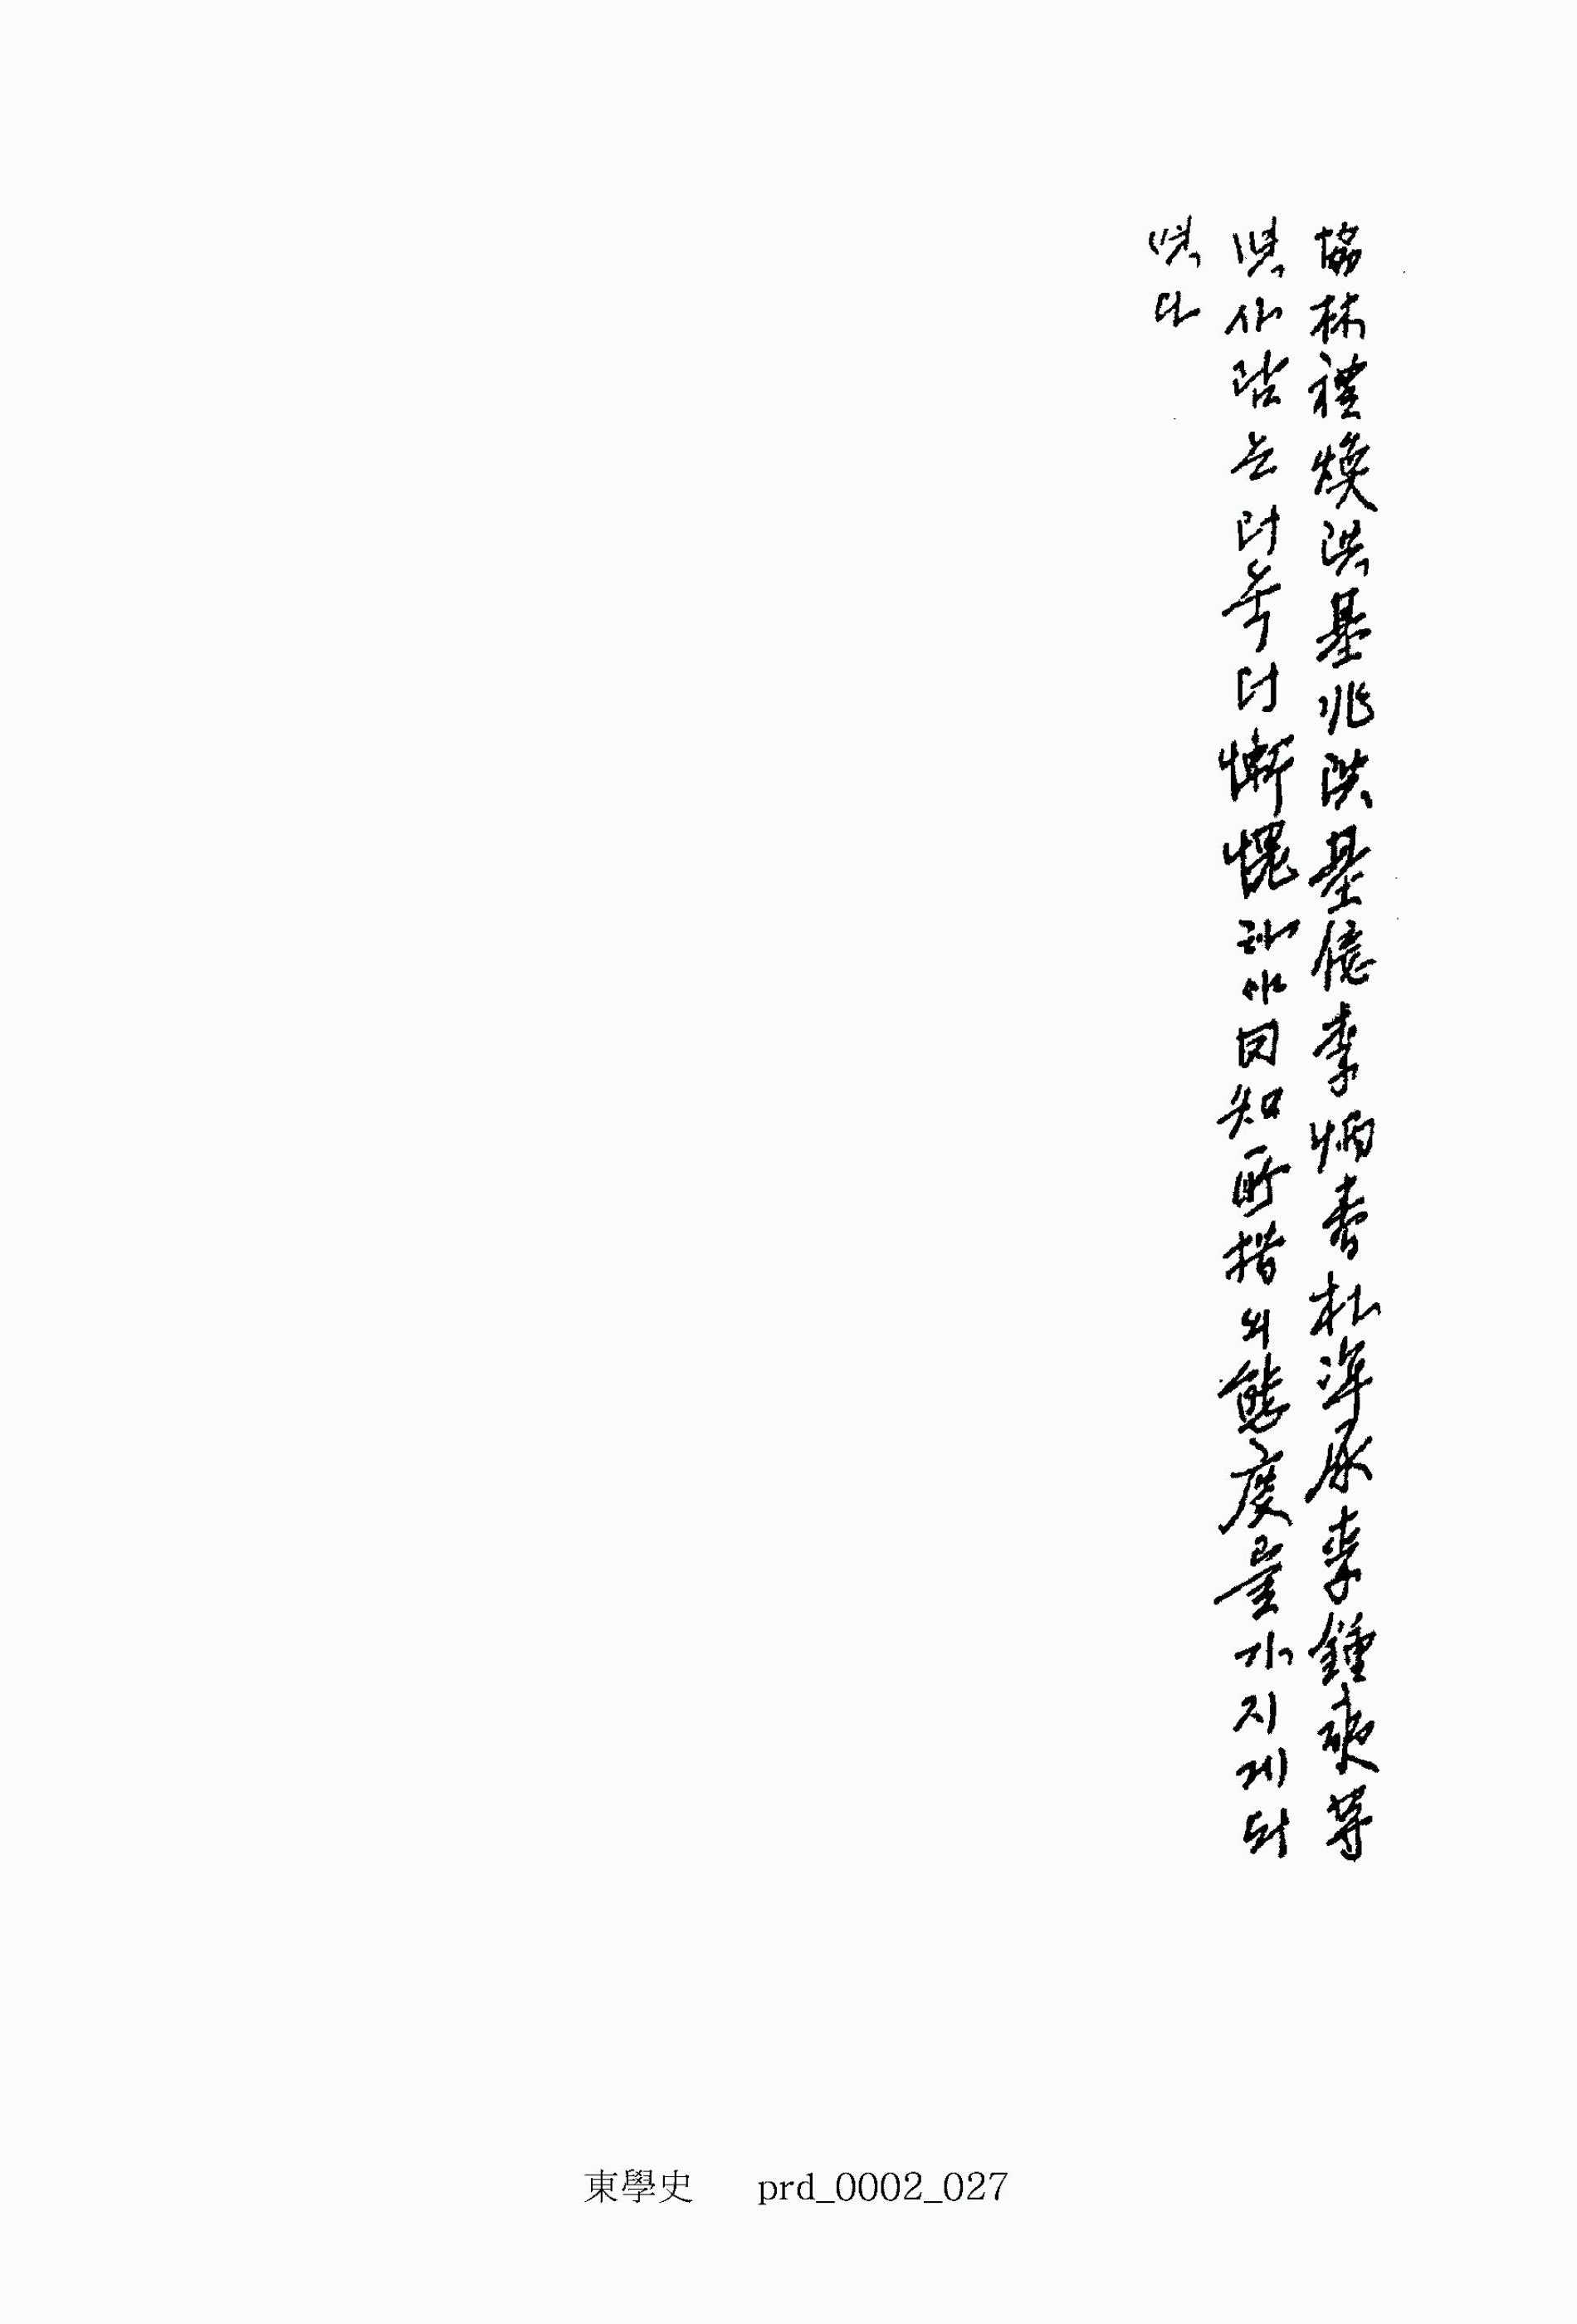 協林禮煥洪基兆洪基億李炳春朴準承李鍾奭等
열사람는더욱더慚愧하야罔知所措의態度를가지게되
엿다
東學史 prd_0002_027